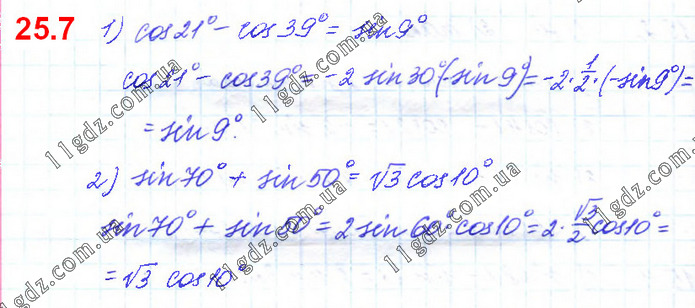 25.7 1) cos21° - cos39° = sin9°
cos21° - cos39° = -2 sin30°(-sin9°) = -2·1/2·(-sin9°) =
= sin9°.
2) sin70° + sin50° = √3 cos10°
sin70° + sin50° = 2 sin60°·cos10° = 2·√3/2 cos10° =
= √3 cos10°
11gdz.com.ua
11gdz.com.ua
11gdz.com.ua
11gdz.com.ua
11gdz.com.ua
11gdz.com.ua